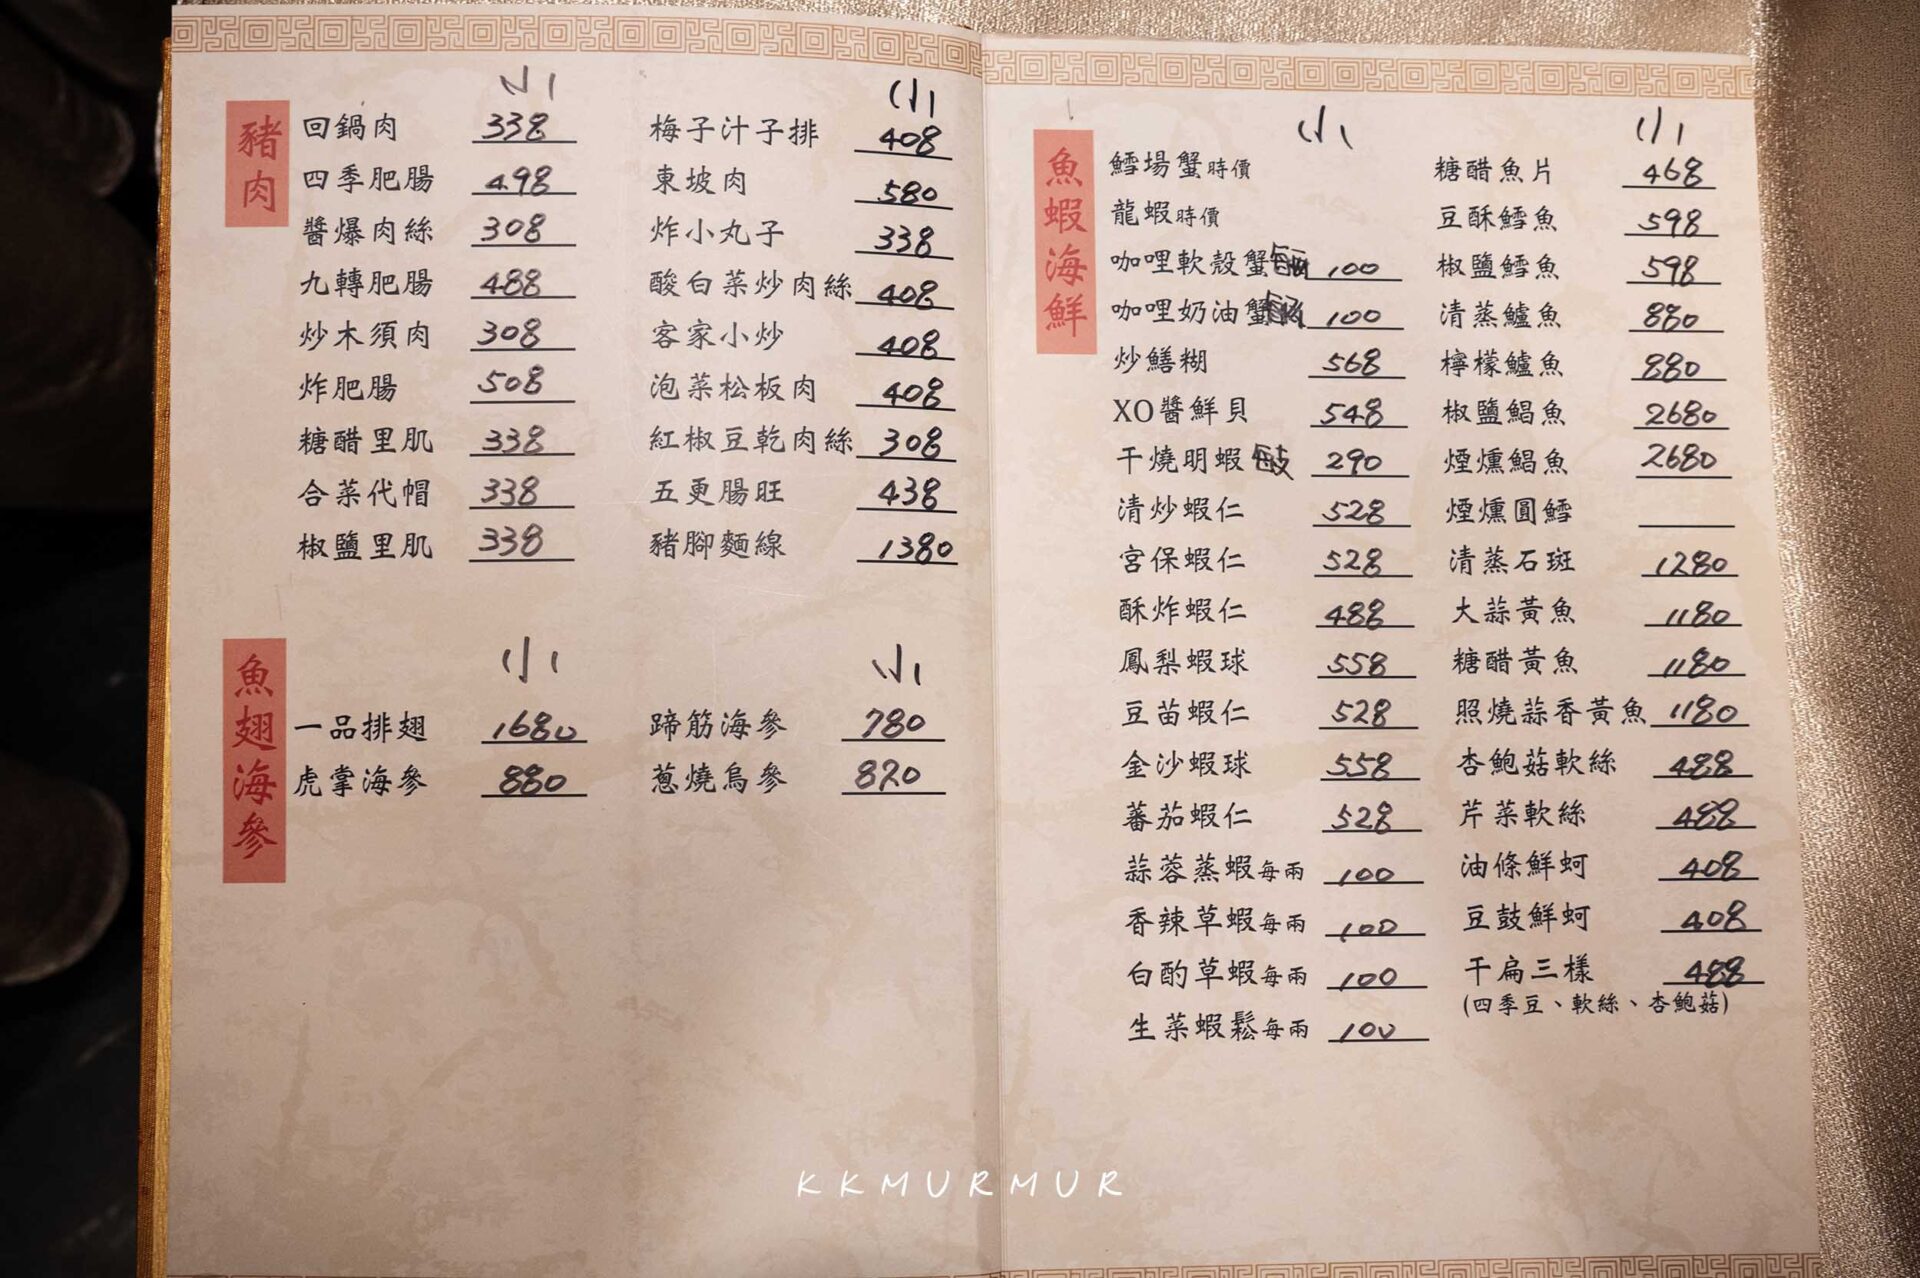 豬肉
小
回鍋肉 338
四季肥腸 498
醬爆肉絲 308
九轉肥腸 488
炒木須肉 308
炸肥腸 508
糖醋里肌 338
合菜代帽 338
椒鹽里肌 338
小
梅子汁子排 408
東坡肉 580
炸小丸子 338
酸白菜炒肉絲 408
客家小炒 408
泡菜松板肉 408
紅椒豆乾肉絲 308
五更腸旺 438
豬腳麵線 1380
魚翅海參
小
一品排翅 1680
虎掌海參 880
小
蹄筋海參 780
蔥燒烏參 820
魚蝦海鮮
小
鱈場蟹時價
龍蝦時價
咖哩軟殼蟹每兩 100
咖哩奶油蟹 100
炒鱔糊 568
XO醬鮮貝 548
干燒明蝦每支 290
清炒蝦仁 528
宮保蝦仁 528
酥炸蝦仁 488
鳳梨蝦球 558
豆苗蝦仁 528
金沙蝦球 558
蕃茄蝦仁 528
蒜蓉蒸蝦每兩 100
香辣草蝦每兩 100
白酌草蝦每兩 100
生菜蝦鬆每兩 100
小
糖醋魚片 468
豆酥鱈魚 598
椒鹽鱈魚 598
清蒸鱸魚 880
檸檬鱸魚 880
椒鹽鯧魚 2680
煙燻鯧魚 2680
煙燻圓鱈
清蒸石斑 1280
大蒜黃魚 1180
糖醋黃魚 1180
照燒蒜香黃魚 1180
杏鮑菇軟絲 488
芹菜軟絲 488
油條鮮蚵 408
豆鼓鮮蚵 408
干扁三樣 488
(四季豆、軟絲、杏鮑菇)
KKMURMUR